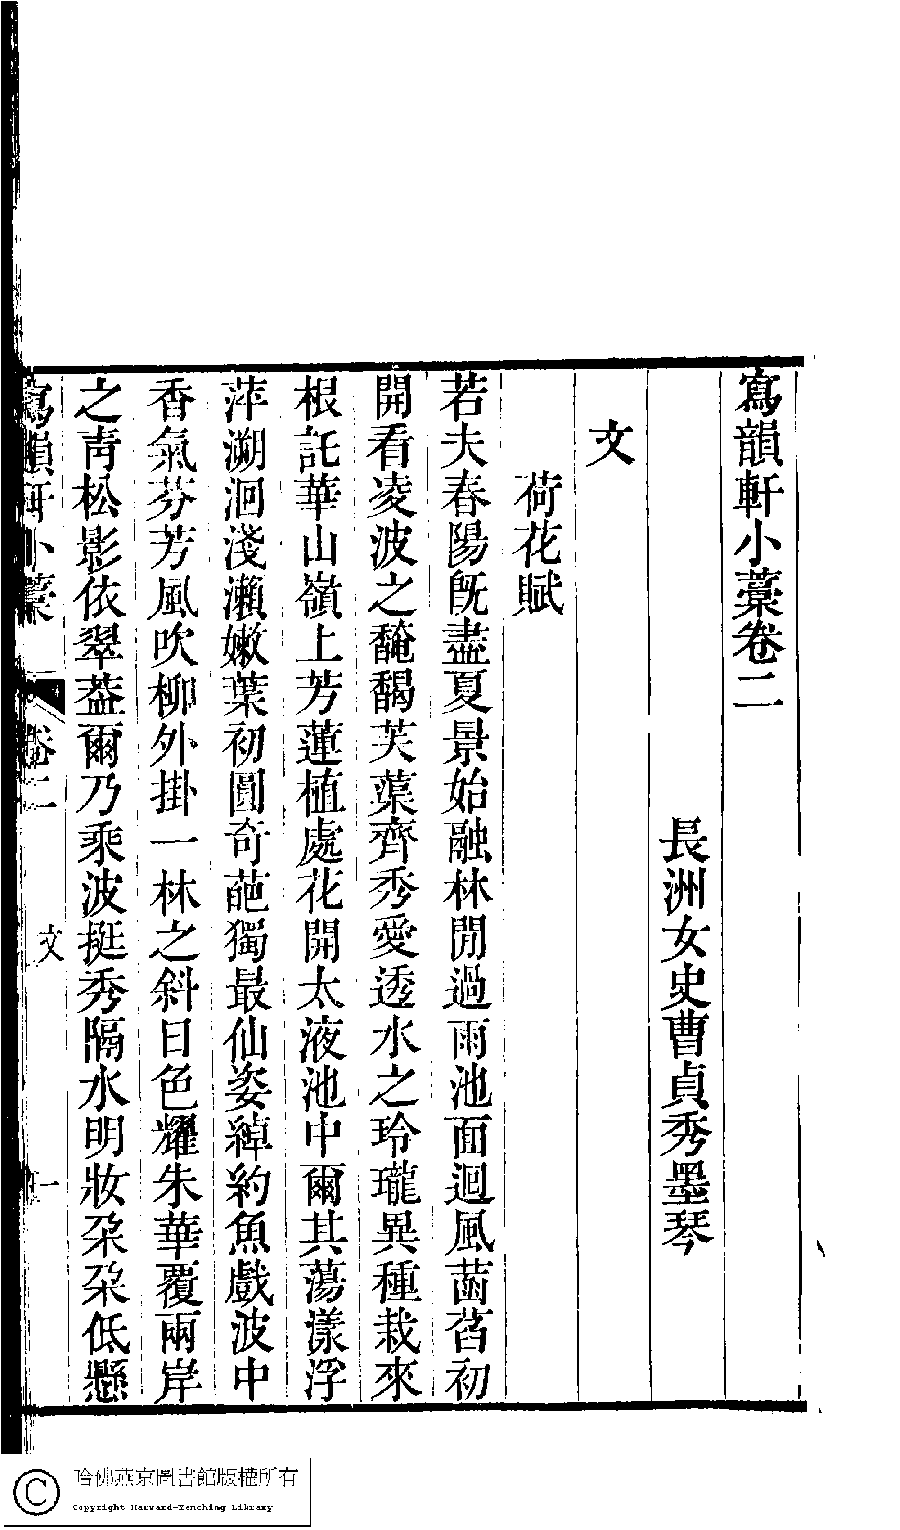 寫韻軒小藁卷二
長洲女史曹貞秀墨琴
文
荷花賦
若夫春陽既盡夏景始融林閒過雨池面迴風菡萏初
開看凌波之馣馤芙蕖齊秀愛透水之玲瓏異種栽來
根託華山嶺上芳蓮植處花開太液池中爾其蕩漾浮
萍溯洄淺瀨嫩葉初圓奇葩獨最仙姿綽約魚戲波中
香氣芬芳風吹柳外掛一林之斜日色耀朱華覆兩岸
之靑松影依翠葢爾乃乘波挺秀隔水明妝朶朶低懸
寫韻軒小藁 卷二 文 一
哈佛燕京圖書館版權所有
Copyright Harvard-Yenching Library